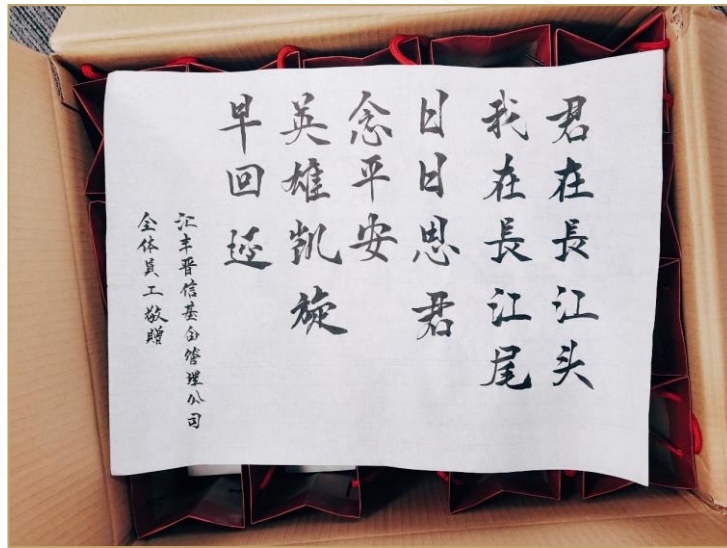 君在長江头
我在長江尾
日日思君
念平安
英雄凯旋
早回延
汇丰晋信基金管理公司
全体员工敬贈